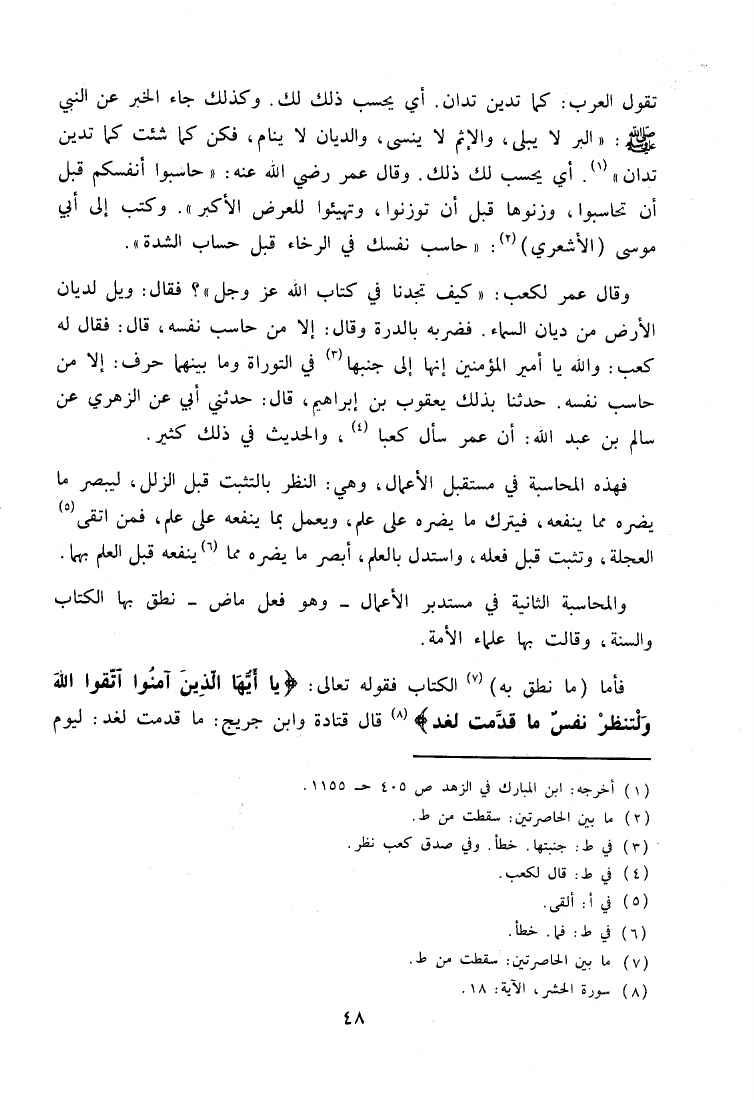 تقول العرب: كما تدين تدان. أي يحسب ذلك لك. وكذلك جاء الخبر عن النبي
ﷺ: « البر لا يبلى، والإثم لا ينسى، والديان لا ينام، فكن كما شئت كما تدين
تدان » (١). أي يحسب لك ذلك. وقال عمر رضي الله عنه: « حاسبوا أنفسكم قبل
أن تحاسبوا، وزنوها قبل أن توزنوا، وتهيئوا للعرض الأكبر ». وكتب إلى أبي
موسى (الأشعري) (٢): « حاسب نفسك في الرخاء قبل حساب الشدة ».
وقال عمر لكعب: « كيف تجدنا في كتاب الله عز وجل »؟ فقال: ويل لديان
الأرض من ديان السماء. فضربه بالدرة وقال: إلا من حاسب نفسه، قال: فقال له
كعب: والله يا أمير المؤمنين إنها إلى جنبها (٣) في التوراة وما بينهما حرف: إلا من
حاسب نفسه. حدثنا بذلك يعقوب بن إبراهيم، قال: حدثني أبي عن الزهري عن
سالم بن عبد الله: أن عمر سأل كعبا (٤)، والحديث في ذلك كثير.
فهذه المحاسبة في مستقبل الأعمال، وهي: النظر بالتثبت قبل الزلل، ليبصر ما
يضره مما ينفعه، فيترك ما يضره على علم، ويعمل بما ينفعه على علم، فمن اتقى (٥)
العجلة، وتثبت قبل فعله، واستدل بالعلم، أبصر ما يضره مما (٦) ينفعه قبل العلم بها.
والمحاسبة الثانية في مستدبر الأعمال ـ وهو فعل ماض ـ نطق بها الكتاب
والسنة، وقالت بها علماء الأمة.
فأما (ما نطق به) (٧) الكتاب فقوله تعالى: ﴿يا أَيُّهَا الَّذِينَ آمنُوا اَتَّقوا اللهَ
وَلْتنظرْ نفسٌ ما قدَّمت لغد﴾ (٨) قال قتادة وابن جريج: ما قدمت لغد: ليوم
(١) أخرجه: ابن المبارك في الزهد ص ٤٠٥ حـ ١١٥٥.
(٢) ما بين الحاصرتين: سقطت من ط.
(٣) في ط: جنبتها. خطأ. وفي صدق كعب نظر.
(٤) في ط: قال لكعب.
(٥) في أ: ألقى.
(٦) في ط: فما. خطأ.
(٧) ما بين الحاصرتين: سقطت من ط.
(٨) سورة الحشر، الآية: ١٨.
٤٨